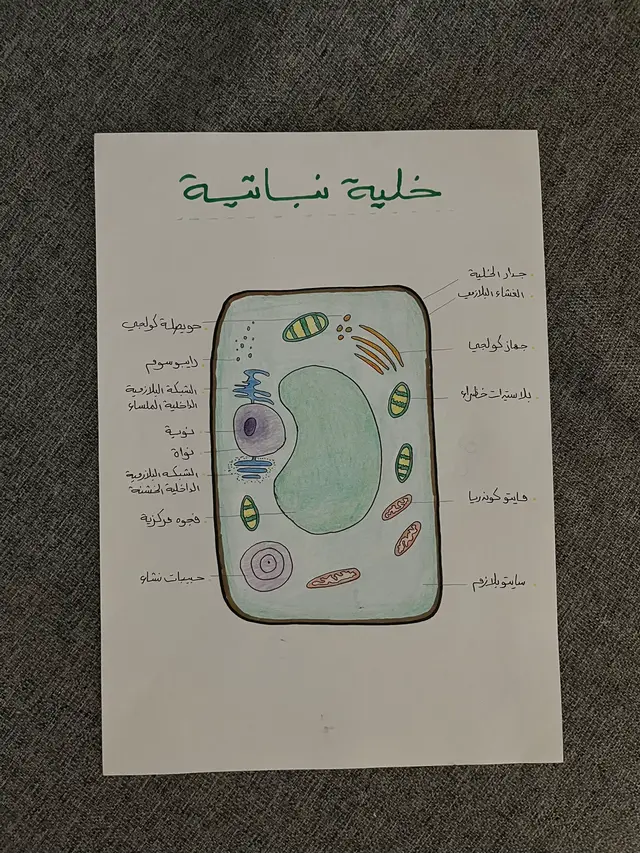 خلية نباتية
جدار الخلية
الغشاء البلازمي
جهاز كولجي
بلاستيدات خضراء
مايتوكوندريا
سايتوبلازم
حويصلة كولجي
رايبوسوم
الشبكة البلازمية
الداخلية الملساء
نوية
نواة
الشبكة البلازمية
الداخلية الخشنة
فجوه مركزية
حبيبات نشاء